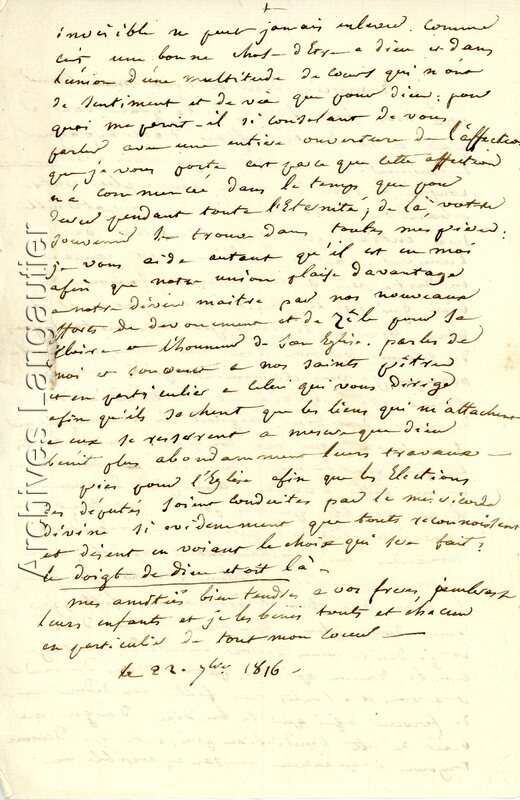 +
invisible ne peut jamais enlever. Comme
c'est une bonne chose d'Etre a dieu et dans
l'union d'une multitude de cœurs qui n'ont
de sentiment et de vie que pour dieu: pour
quoi me paroit-il si consolant de vous
parler avec une entiere ouverture de l'affection
que je vous porte c'est parce que cette affection
n'a commencé dans le temps que pour
durer pendant toute l'Eternité, de là, votre
souvenir se trouve dans toutes mes prieres:
je vous aide autant qu'il est en moi
afin que notre union plaise davantage
a notre divin maitre par nos nouveaux
efforts de devouement et de Zele pour la
gloire et l'honneur de son Eglise. parles de
moi et souvent a nos saints prêtres
et en particulier a celui qui vous dirige
afin qu'ils sachent que les liens qui m'attachent
a eux se resserrent a mesure que dieu
benit plus abondamment leurs travaux —
pries pour l'Eglise afin que les Elections
des députés soient conduites par la misericorde
divine si evidemment que touts reconnoissent
et disent en voiant le choix qui sera fait:
le doigt de dieu etoit là —
mes amitiés bien tendres a vos freres, j'embrasse
leurs enfants et je les benis touts et chacun
en particulier de tout mon coeur —
le 22. 7bre 1816 -
Archives Langautier